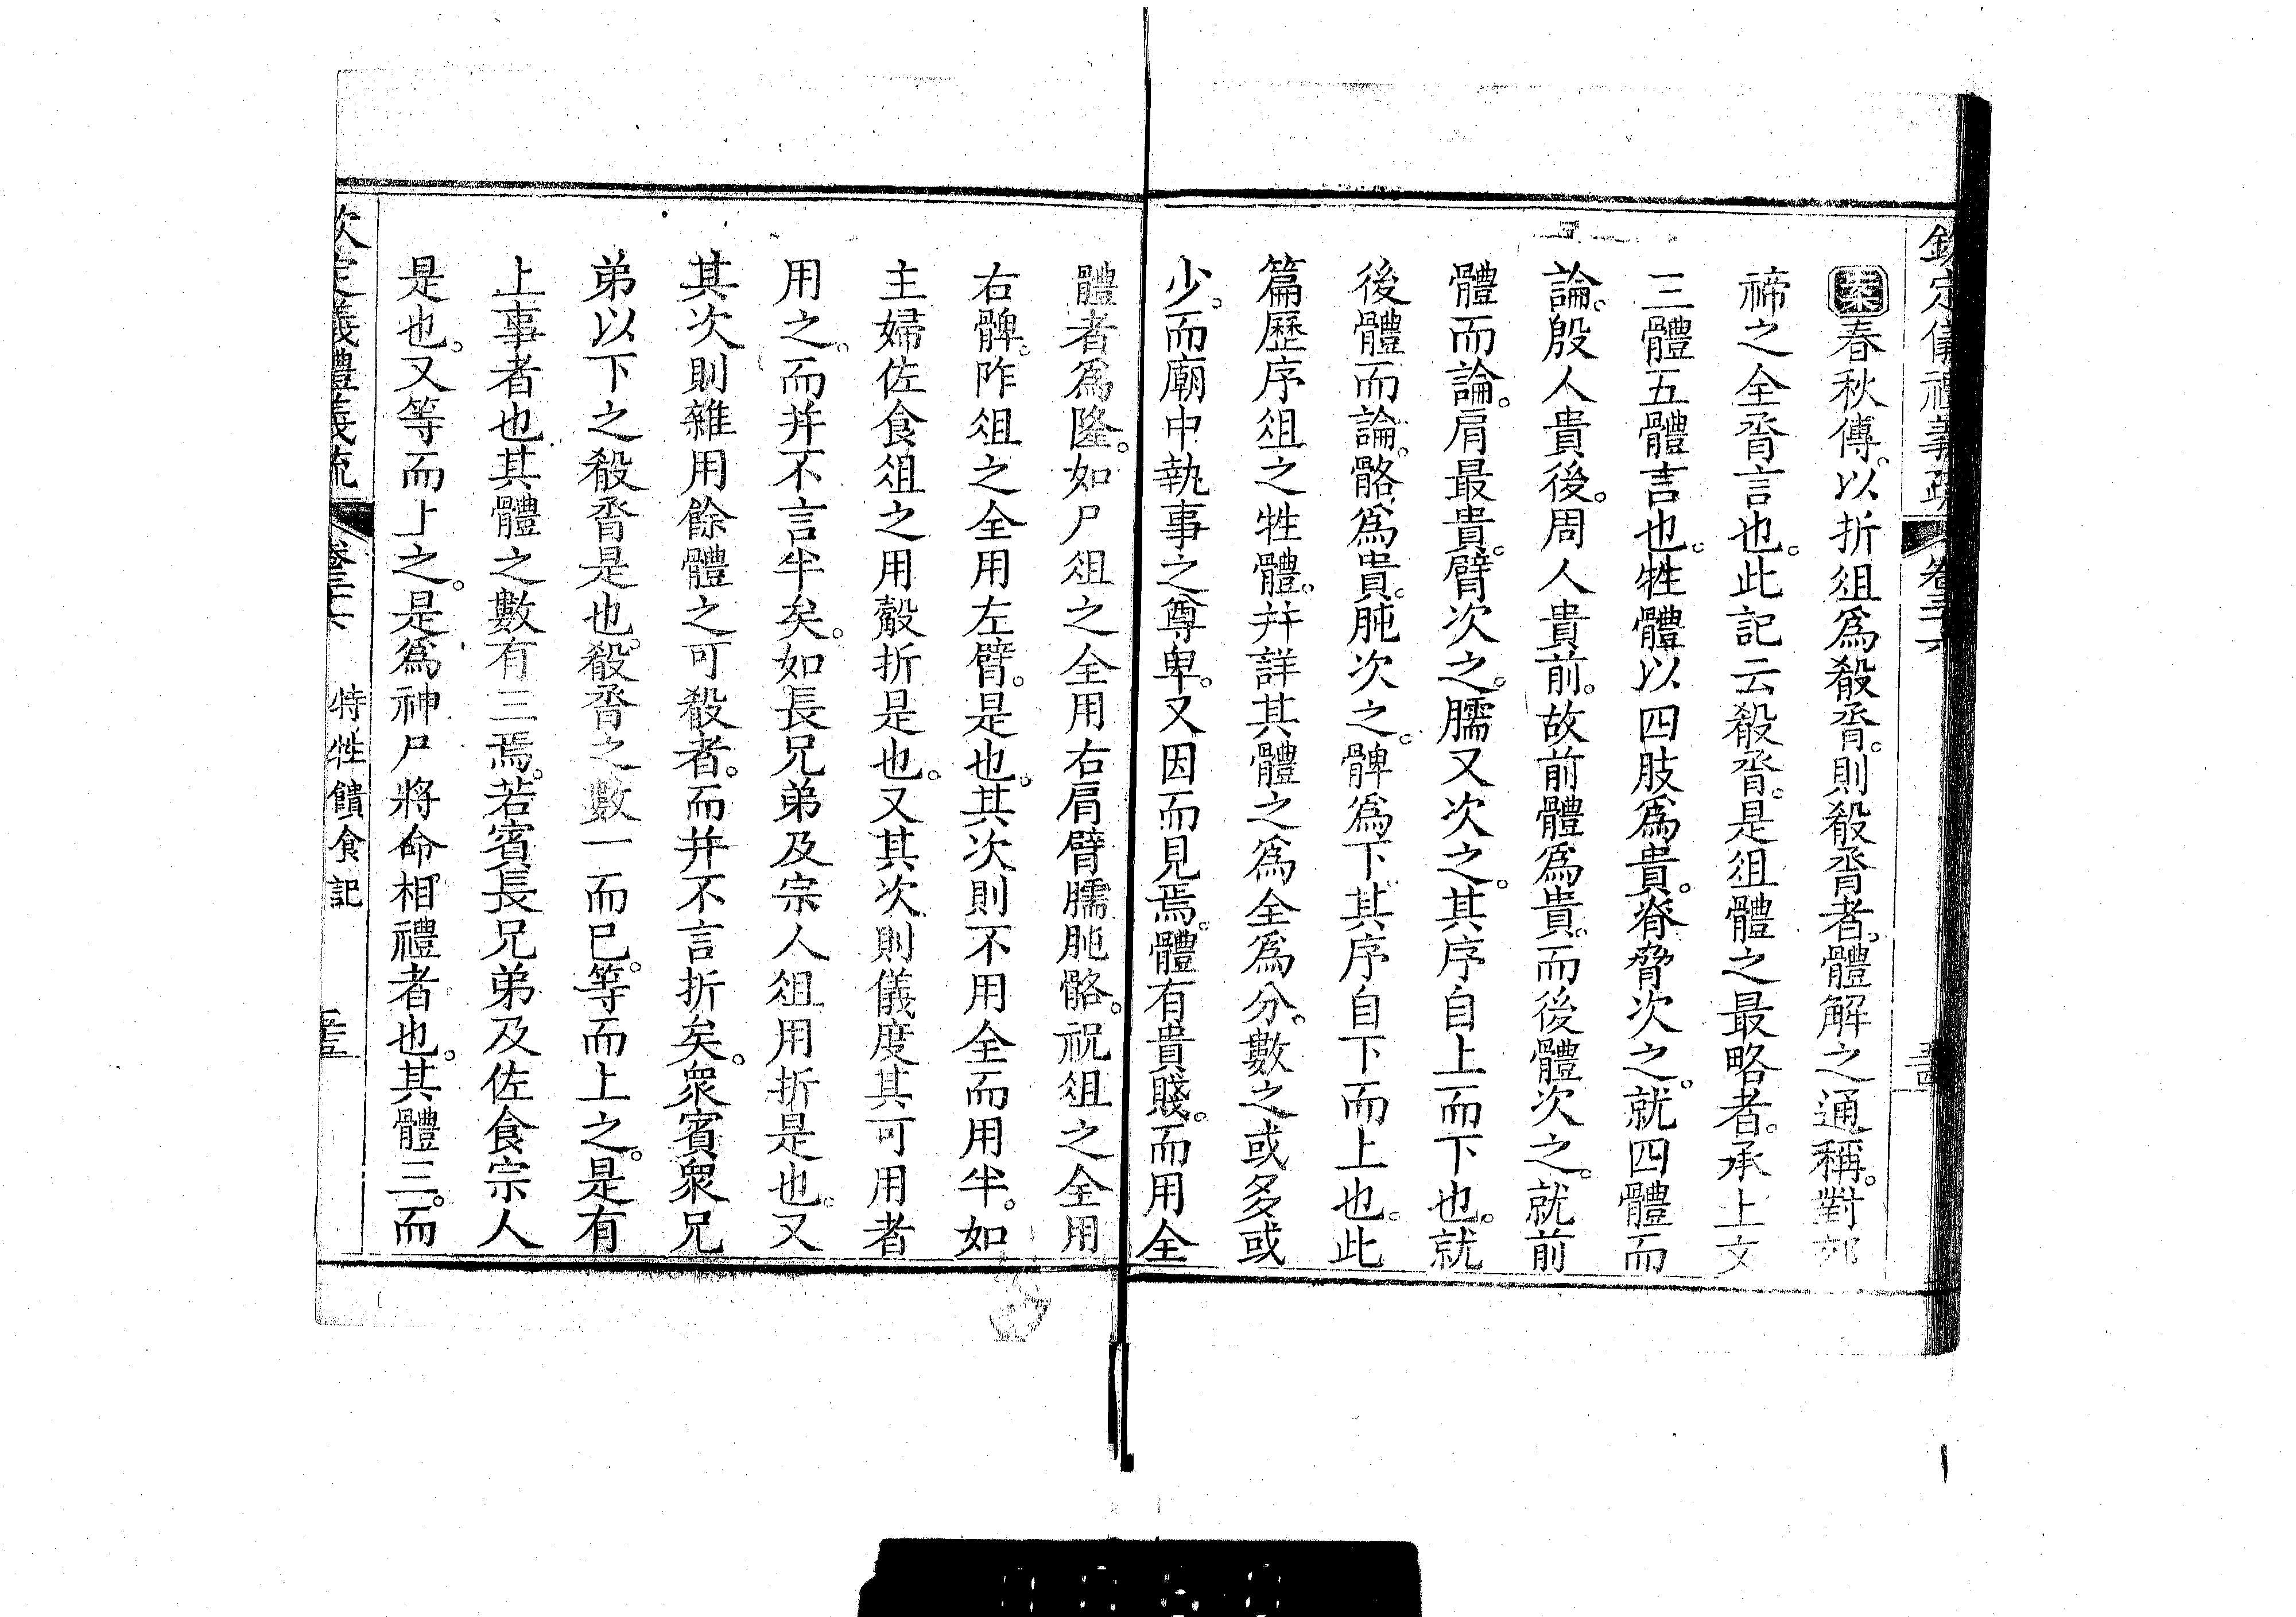 欽定儀禮義疏 卷三十六
案春秋傳。以折俎爲殽脀。則殽脀者。體解之通稱。對郊
禘之全脀言也。此記云殽脀。是俎體之最略者。承上文
三體五體言也。牲體以四肢爲貴。脊脅次之。就四體而
論。殷人貴後。周人貴前。故前體爲貴。而後體次之。就前
體而論。肩最貴。臂次之。臑又次之。其序自上而下也。就
後體而論。骼爲貴。肫次之。髀爲下。其序自下而上也。此
篇歷序俎之牲體。幷詳其體之爲全爲分。數之或多或
少。而廟中執事之尊卑。又因而見焉。體有貴賤。而用全
體者爲隆。如尸俎之全用右肩臂臑肫骼。祝俎之全用
右髀。阼俎之全用左臂。是也。其次則不用全而用半。如
主婦佐食俎之用觳折是也。又其次則儀度其可用者
用之。而幷不言半矣。如長兄弟及宗人俎用折是也。又
其次則雜用餘體之可殽者。而幷不言折矣。衆賓衆兄
弟以下之殽脀是也。殽脀之數一而已。等而上之。是有
上事者也。其體之數有三焉。若賓長兄弟及佐食宗人
是也。又等而上之。是爲神尸將命相禮者也。其體三。而
欽定義禮義疏 卷三十六 特牲饋食記